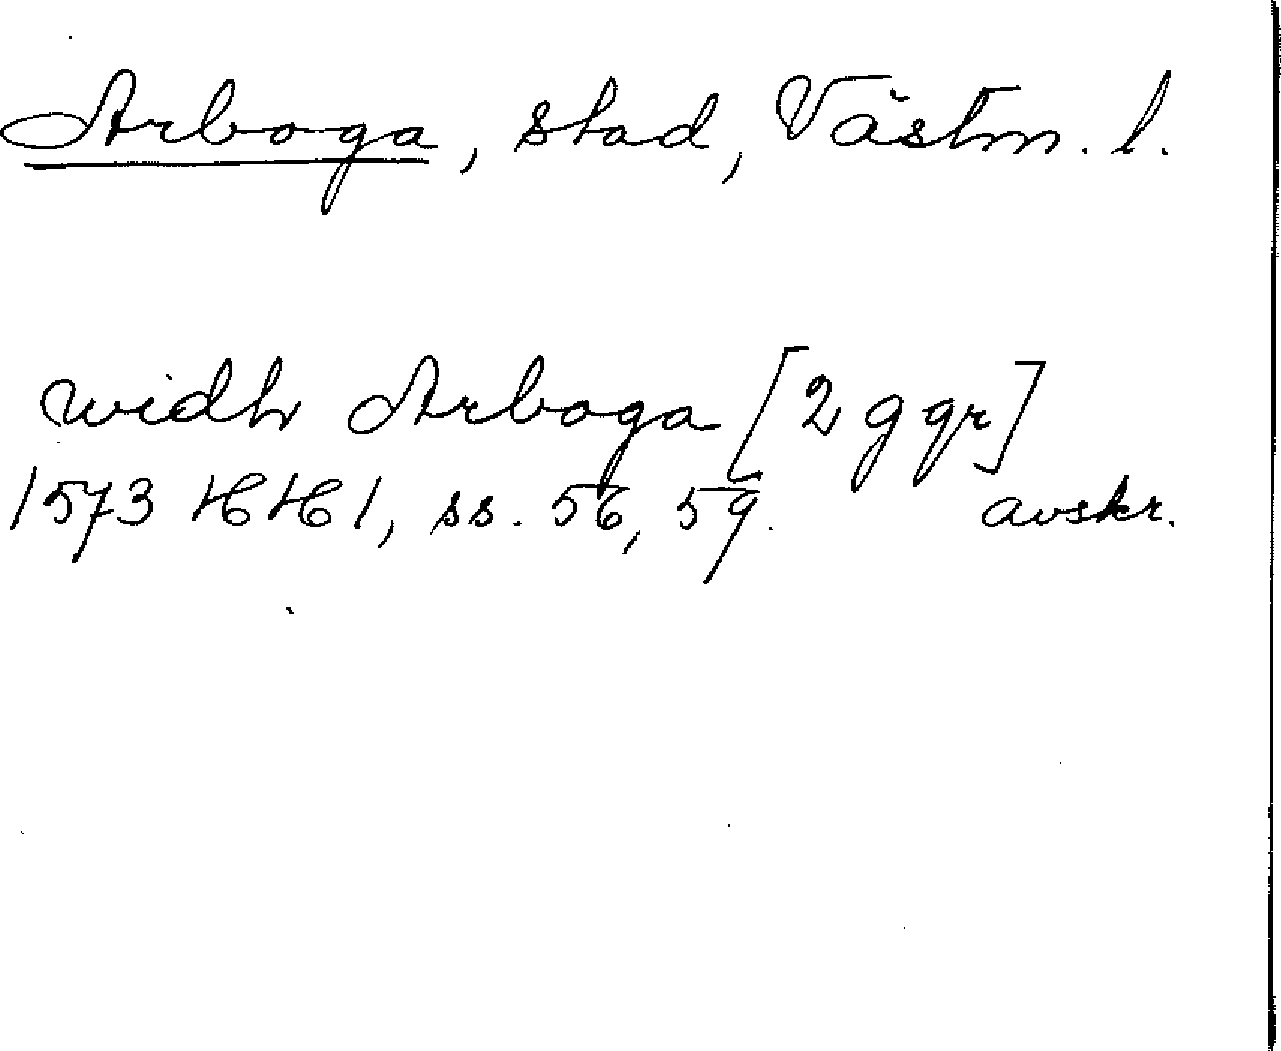 Arboga, stad, Västm. l.
widh Arboga [2 ggr]
1573 HH 1, ss. 56, 59. avskr.